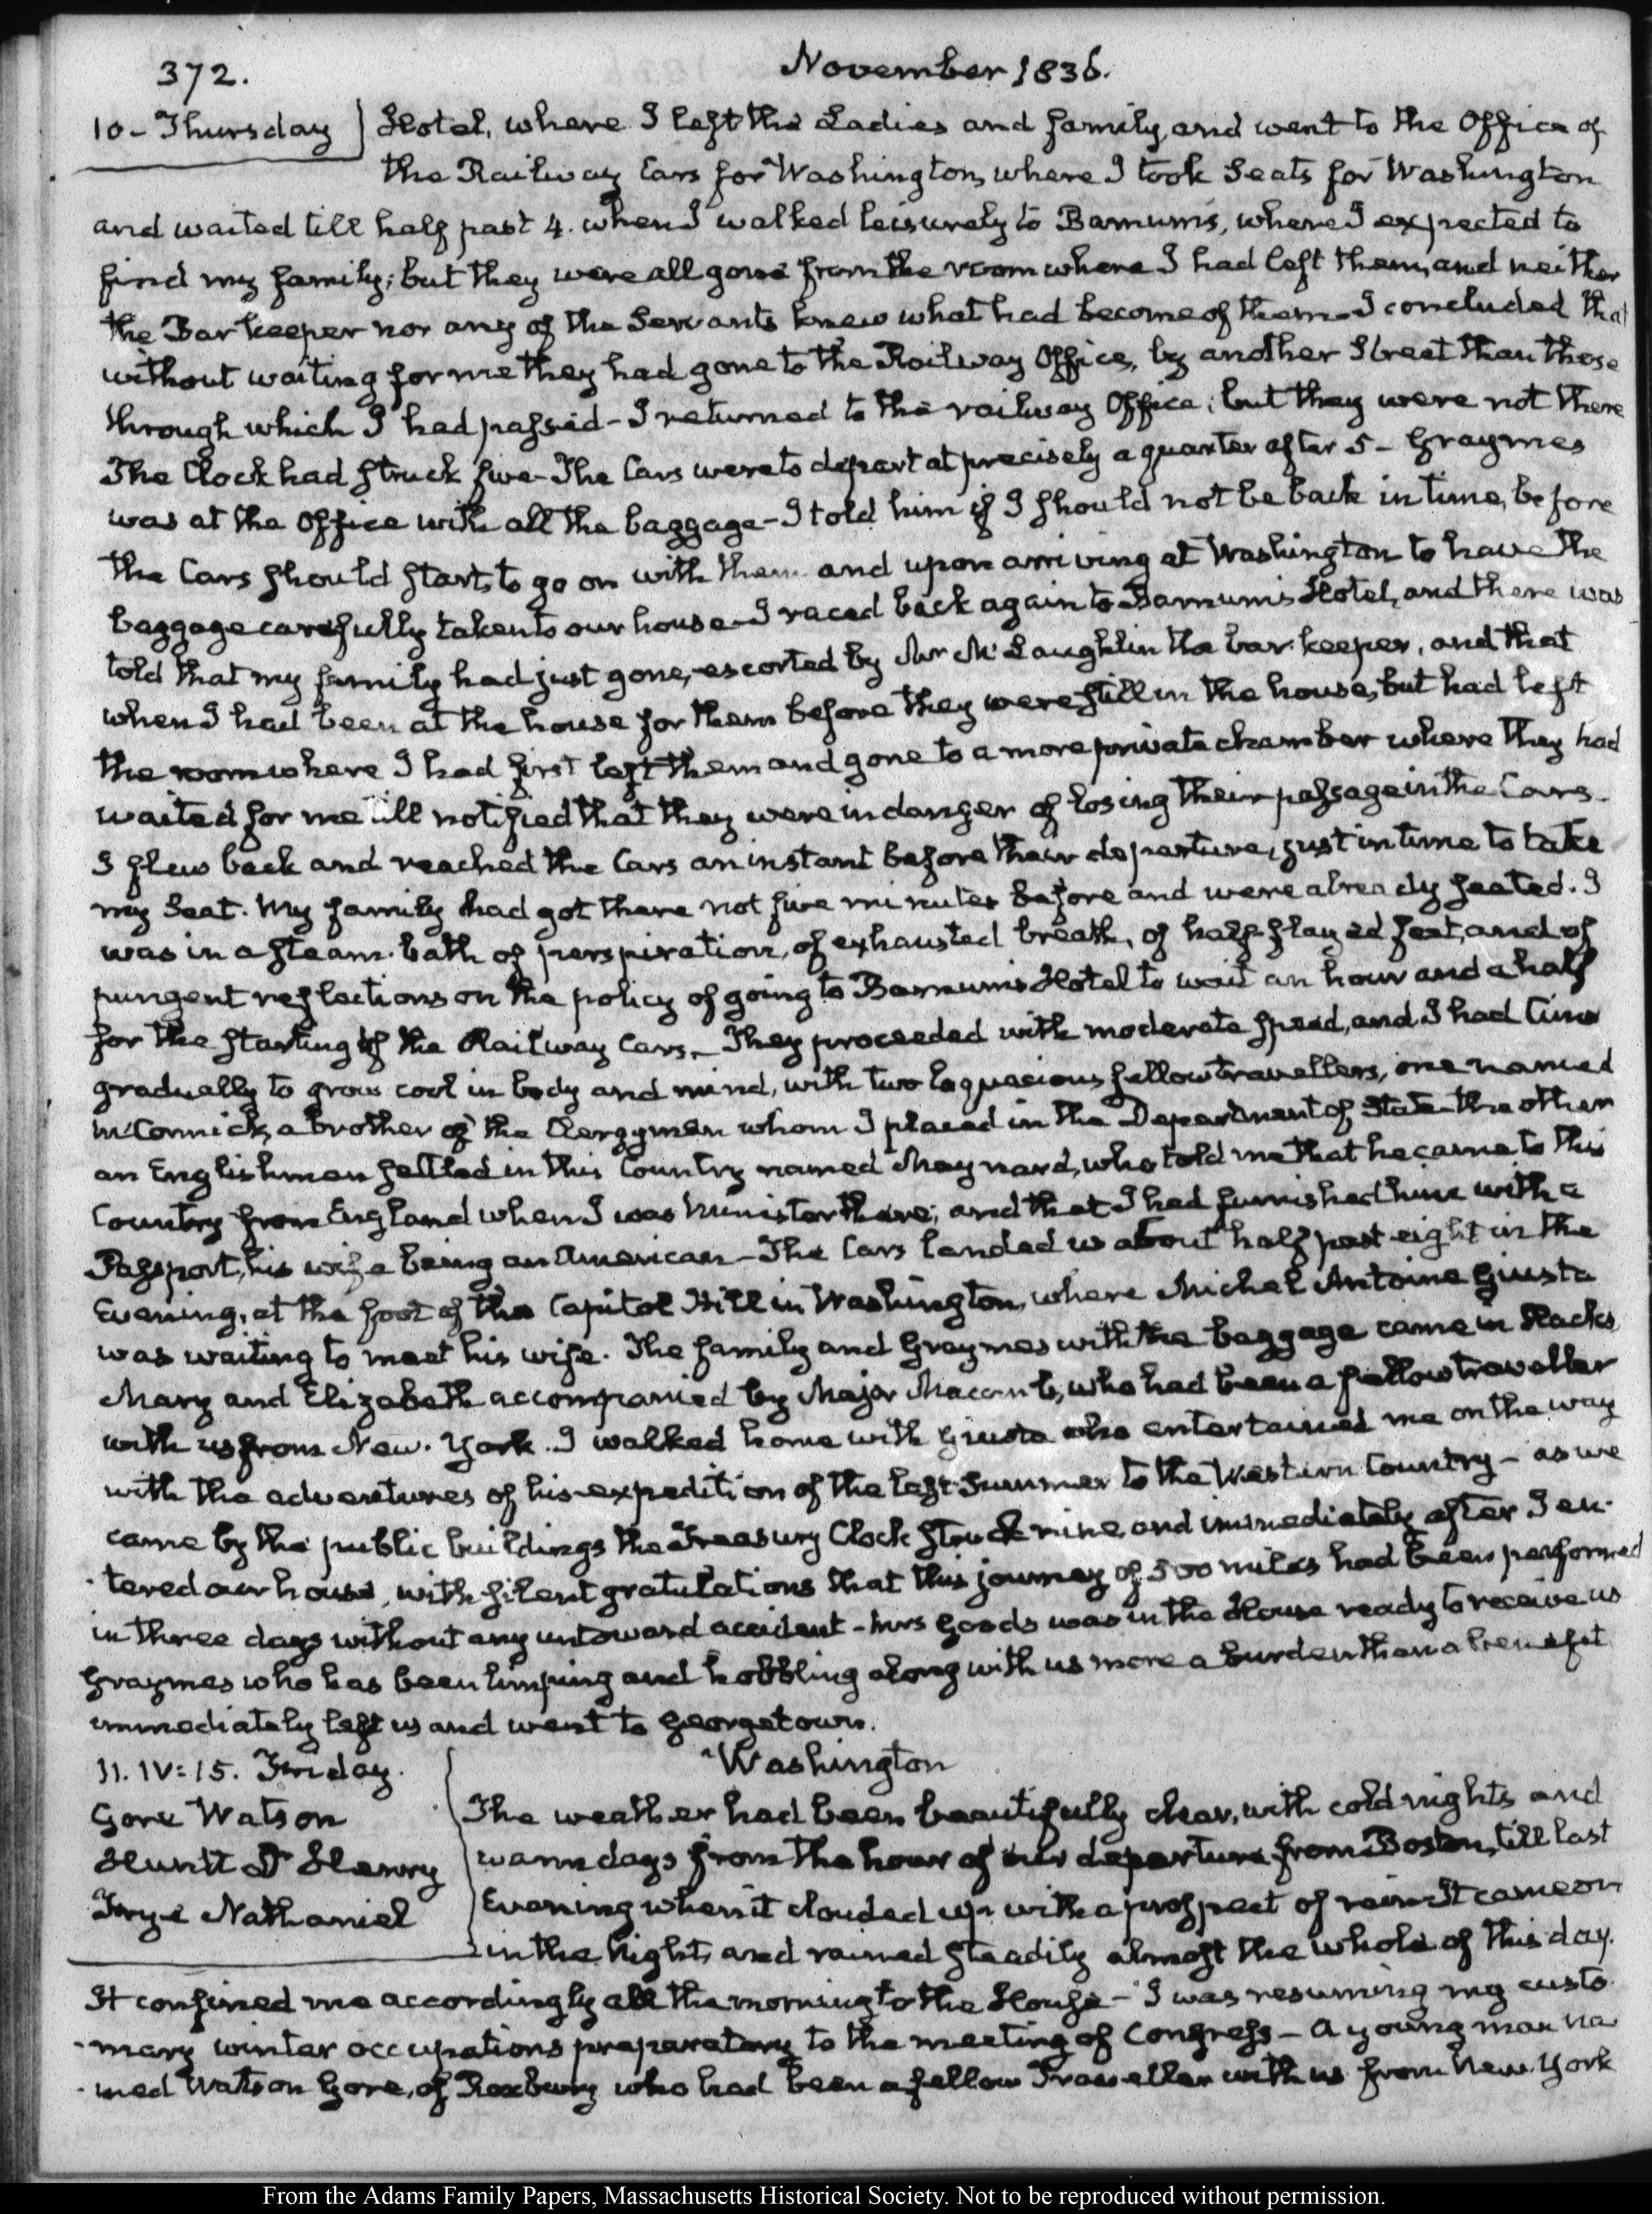 372.
November 1836.
10 - Thursday
Hotel, where I left the Ladies and family, and went to the Office of
the Railway Cars for Washington, where I took Seats for Washington
and waited till half past 4. when I walked leisurely to Barnum's, where I expected to
find my family; but they were all gone from the room where I had left them, and neither
the Bar keeper nor any of the Servants knew what had become of them - I concluded that
without waiting for me they had gone to the Railway Office, by another Street than those
through which I had passed - I returned to the railway Office; but they were not there
The Clock had struck five - The Cars were to depart at precisely a quarter after 5 - Graymes
was at the Office with all the baggage - I told him if I should not be back in time, before
the Cars should start, to go on with them and upon arriving at Washington to have the
baggage carefully taken to our house - I raced back again to Barnum's Hotel, and there was
told that my family had just gone, escorted by Mr McLaughlin the bar keeper, and that
when I had been at the house for them before they were still in the house, but had left
the room where I had first left them and gone to a more private chamber where they had
waited for me till notified that they were in danger of losing their passage in the Cars.
I flew back and reached the Cars an instant before their departure, just in time to take
my Seat. My family had got there not five minutes before and were already seated. I
was in a steam-bath of perspiration, of exhausted breath, of half-flayed feet, and of
pungent reflections on the policy of going to Barnum's Hotel to wait an hour and a half
for the starting of the Railway Cars. - They proceeded with moderate speed, and I had time
gradually to grow cool in body and mind, with two loquacious fellow travellers, one named
McCormick, a brother of the Clergyman whom I placed in the Department of State - the other
an Englishman settled in this Country named Maynard, who told me that he came to this
Country from England when I was Minister there; and that I had furnished him with a
Passport, his wife being an American - The Cars landed us about half past eight in the
Evening, at the foot of the Capitol Hill in Washington, where Michel Antoine Giusta
was waiting to meet his wife. The family and Graymes with the baggage came in Hacks
Mary and Elizabeth accompanied by Major Macomb, who had been a fellow traveller
with us from New-York. I walked home with Giusta who entertained me on the way
with the adventures of his expedition of the last Summer to the Western Country - as we
came by the public buildings the Treasury Clock struck nine, and immediately after I en-
-tered our house, with silent gratulations that this journey of 500 miles had been performed
in three days without any untoward accident - Mrs Goods was in the House ready to receive us
Graymes who has been limping and hobbling along with us more a burden than a benefit
immediately left us and went to Georgetown.
11. IV: 15. Friday.
Gore Watson
Hunt Dr Henry
Frye Nathaniel
Washington
The weather had been beautifully clear, with cold nights and
warm days from the hour of our departure from Boston, till last
Evening when it clouded up with a prospect of rain - It came on
in the Night, and rained steadily almost the whole of this day.
It confined me accordingly all the morning to the House - I was resuming my custo-
-mary winter occupations preparatory to the meeting of Congress - A young man na-
-med Watson Gore, of Roxbury who had been a fellow Traveller with us from New-York
From the Adams Family Papers, Massachusetts Historical Society. Not to be reproduced without permission.